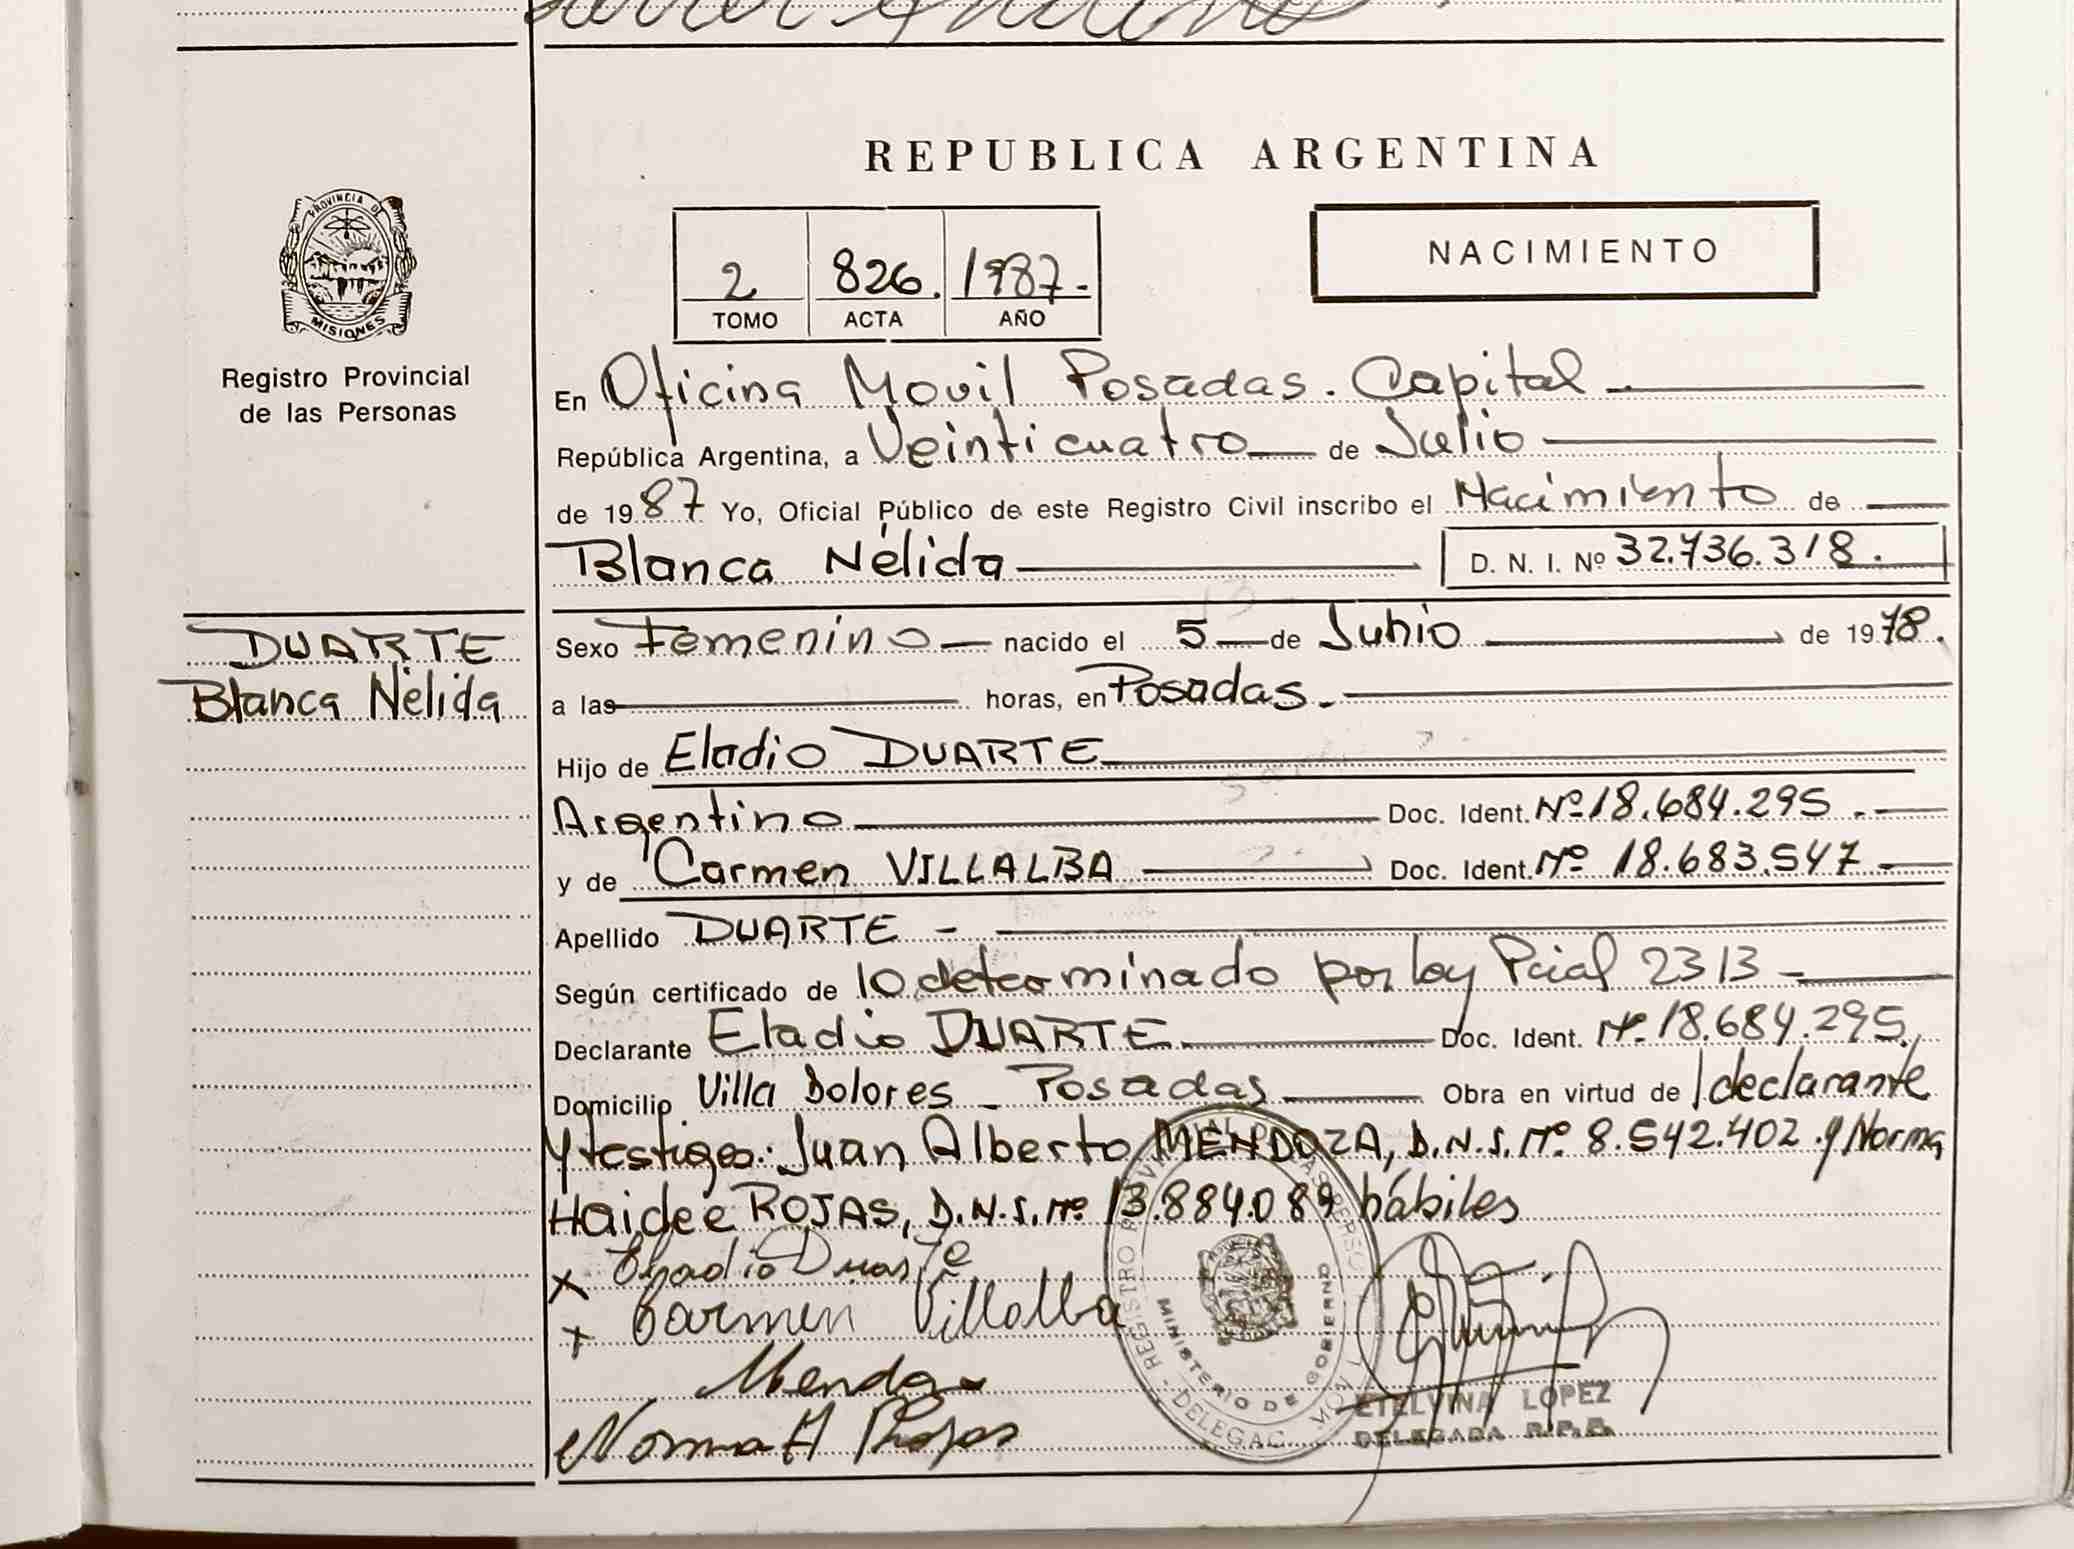 REPUBLICA ARGENTINA
PROVINCIA DE
MISIONES
Registro Provincial
de las Personas
2 826. 1987.-
TOMO ACTA AÑO
NACIMIENTO
En Oficina Movil Posadas. Capital
República Argentina, a Veinticuatro de Julio
de 1987 Yo, Oficial Público de este Registro Civil inscribo el Nacimiento de
Blanca Nélida D. N. I. Nº 32.736.318.
DUARTE
Blanca Nélida
Sexo Femenino nacido el 5 de Junio de 1978.
a las horas, en Posadas.
Hijo de Eladio DUARTE
Argentino Doc. Ident. Nº 18.684.295.
y de Carmen VILLALBA Doc. Ident. Nº 18.683.547
Apellido DUARTE -
Según certificado de lo determinado por ley Pcial 2313
Declarante Eladio DUARTE Doc. Ident. Nº 18.684.295.
Domicilio Villa Dolores - Posadas Obra en virtud de declarante
y testigos: Juan Alberto MENDOZA, D.N.I. Nº 8.542.402 y Norma
Haidee ROJAS, D.N.I. Nº 13.884.089 hábiles
x Eladio Duarte
+ Carmen Villalba
Norma H Rojas
MINISTERIO DE GOBIERNO
ETELVINA LOPEZ
DELEGADA R.P.P.